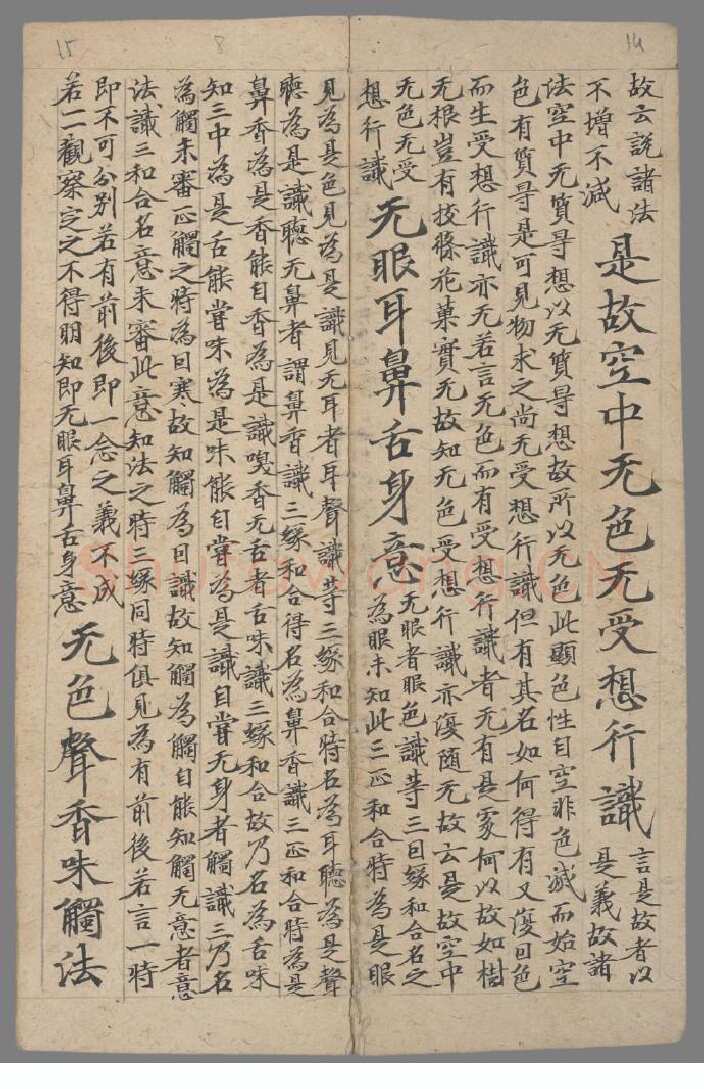 14
故云說諸法
不增不減
是故空中无色无受想行識
言是故者以
是義故諸
法空中无質㝵想以无質㝵想故所以无色此顯色性自空非色滅而始空
色有質㝵是可見物求之尚无受想行識但有其名如何得有又復因色
而生受想行識亦无若言无色而有受想行識者无有是處何以故如樹
无根豈有枝條花菓實无故知无色受想行識亦復随无故云是故空中
无色无受
想行識
无眼耳鼻舌身意
无眼者眼色識等三因緣和合名之
為眼未知此三正和合時為是眼
8
15
見為是色見為是識見无耳者耳聲識等三緣和合時名為耳聽為是聲
聽為是識聽无鼻者謂鼻香識三緣和合得名為鼻香識三正和合時為是
鼻香為是香能自香為是識嗅香无舌者舌味識三緣和合故乃名為舌味
知三中為是舌能甞味為是味能自甞為是識自甞无身者觸識三乃名
為觸未審正觸之時為因寒故知觸為因識故知觸為觸自能知觸无意者意
法識三和合名意未審此意知法之時三緣同時俱見為有前後若言一時
即不可分別若有前後即一念之義不成
若二觀察定之不得明知即无眼耳鼻舌身意
无色聲香味觸法